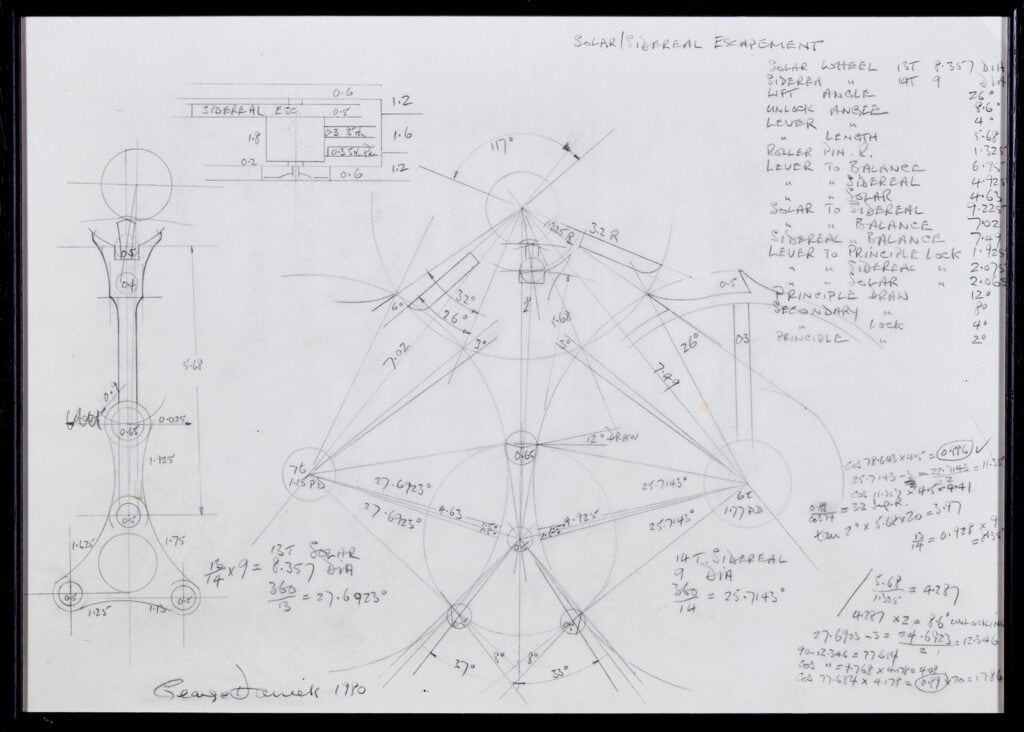 SOLAR/SIDEREAL ESCAPEMENT
SOLAR WHEEL 13T 8.357 DIA
SIDEREAL " 14T 9 DIA
LIFT ANGLE 26°
UNLOCK ANGLE 8.6°
LEVER " 4°
" LENGTH 5.68
ROLLER PIN R. 1.325
LEVER TO BALANCE 6.75
" " SIDEREAL 4.925
" " SOLAR 4.63
SOLAR TO SIDEREAL 9.225
" " BALANCE 7.02
SIDEREAL " BALANCE 7.49
LEVER TO PRINCIPLE LOCK 1.925
" " SIDEREAL " 2.075
" " SOLAR " 2.065
PRINCIPLE DRAW 12°
SECONDARY " 8°
" LOCK 4°
PRINCIPLE " 2°
0.6
1.2
SIDEREAL ESC. 0.5
1.8
1.6
0.2
0.6
1.2
117°
1.325 R
3.2 R
0.5
0.4
6°
32°
26°
3°
2°
5.68
3°
26°
0.5
0.3
7.02
7.49
5.68
0.9
0.65
0.025
1.925
0.5
1.625
1.75
0.5
1.25
1.75
0.5
0.65
12° DRAW
7t
1.15 PD
27.6923°
27.6923°
4.63
4.925
25.7143°
25.7143°
6t
1.77 PD
13T SOLAR
13/14 × 9 = 8.357 DIA
360/13 = 27.6923°
14T. SIDEREAL
9 DIA
360/14 = 25.7143°
37°
8°
8°
33°
COS 78.643 × 4.5 = 0.886 ✓
25.7143 - 3 = 22.7143/2 = 11.35
COS 11.357 × 4.5 = 4.41
tan 2° × 5.68 × 20 = 3.97
13/14 = 0.928 × 9
5.68/1.325 = 4.287
4.287 × 2 = 8.6° UNLOCKING
27.6923 - 3 = 24.6923/2 = 12.346
90 - 12.346 = 77.654
COS 77.654 × 4.178 = 0.89 × 20 = 17.86
George Daniels 1980